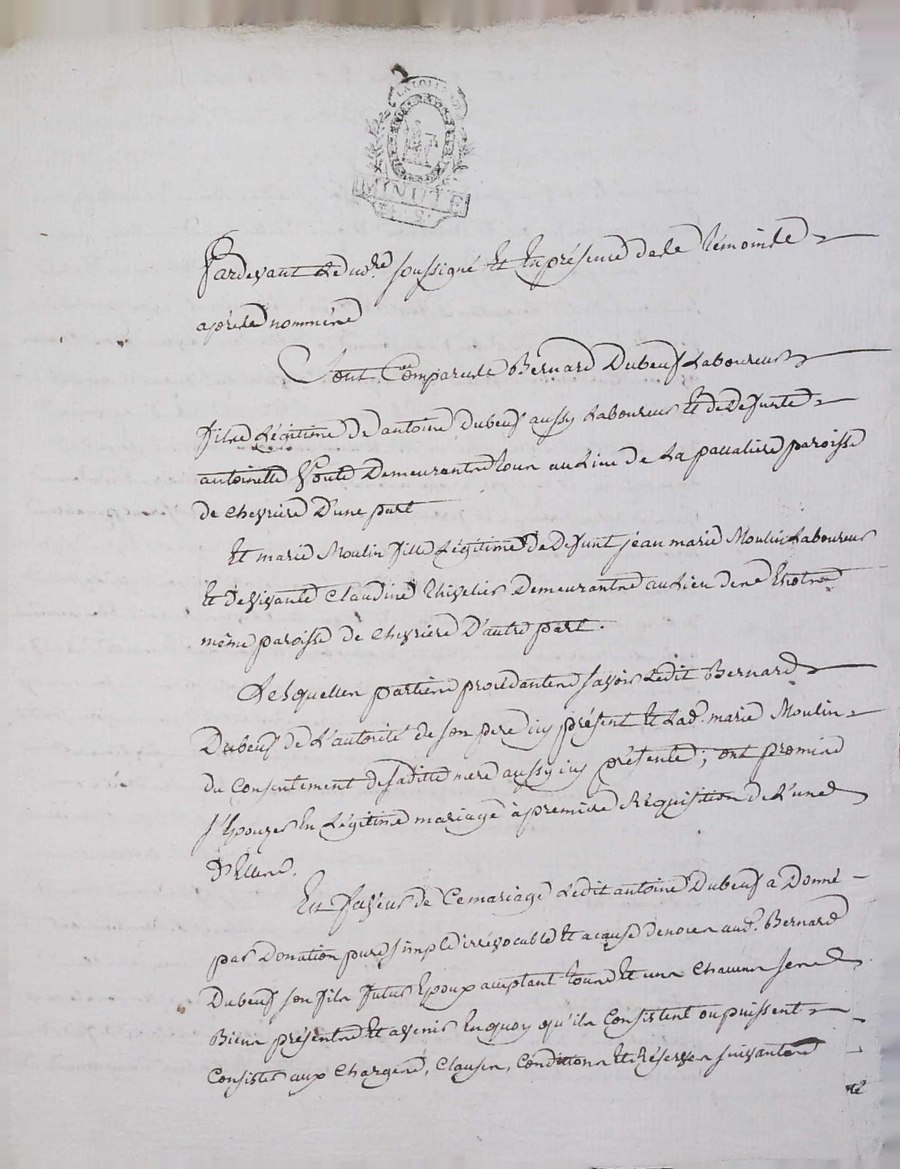 LA LOI
MINUTE
Pardevant Le no.re soussigné Et En présence dele témoinse
aprèse nommées
Sont Comparus Bernard Dubeuf Laboureur
fils Légitime de antoine Dubeuf aussy Laboureur Et de Defunte
antoinette Demeurants tous au Lieu de La paccaliere paroisse
de chevrière D'une part
Et marie Moulin fille Légitime de Defunt jean marie Moulin Laboureur
Et De vivante Claudine Demeurantes au Lieu de
même paroisse de chevrière D'autre part.
Lesquelles parties procédantes savoir Ledit Bernard
Dubeuf de L'autorité de son pere icy présent Et Lad. marie Moulin
du Consentement de sa ditte mere aussy icy présente; ont promis
s'Epouzer En Légitime mariage à première Réquisition de L'une
d'Elles.
En faveur de Ce mariage Ledit antoine Dubeuf a Donné
par Donation pure simple irrévocable Et a cause de noces aud. Bernard
Dubeuf son fils futur Epoux acceptant tous Et un chacun ses
Biens présents Et avenir En quoy qu'ils Consistent ou puissent
Consister aux Charges, Clauses, Conditions Et Réserves suivantes